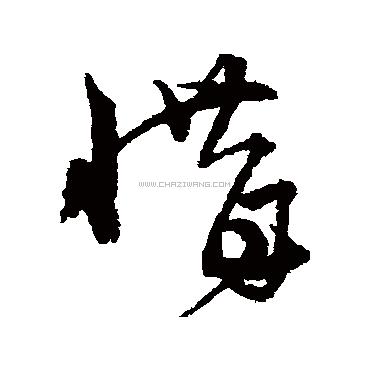 惜
WWW.CHAZIWANG.COM